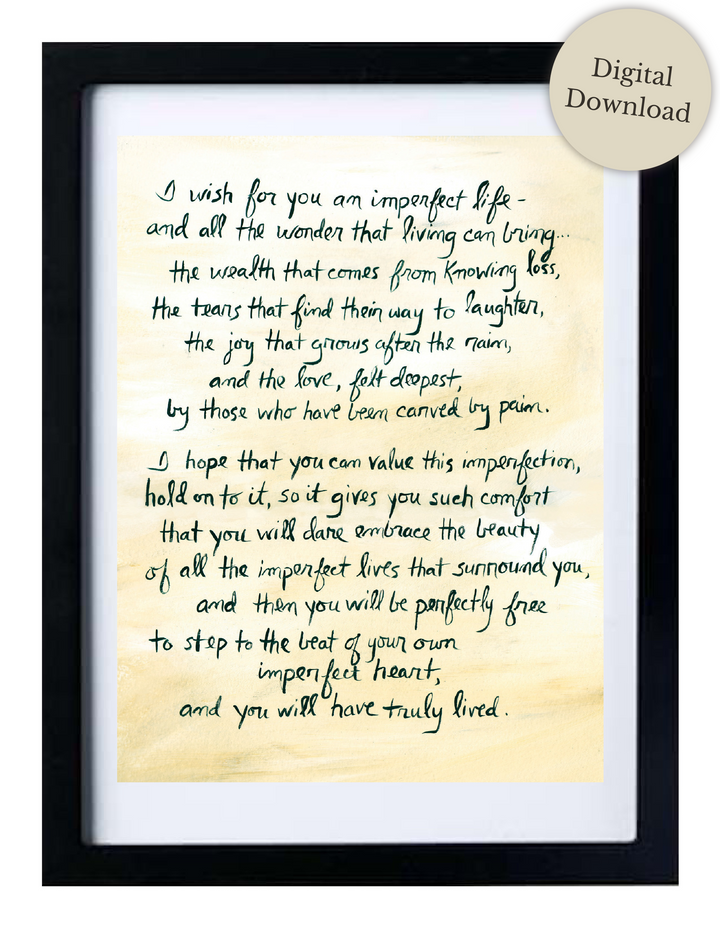 Digital
Download
I wish for you an imperfect life -
and all the wonder that living can bring...
the wealth that comes from knowing loss,
the tears that find their way to laughter,
the joy that grows after the rain,
and the love, felt deepest,
by those who have been carved by pain.
I hope that you can value this imperfection,
hold on to it, so it gives you such comfort
that you will dare embrace the beauty
of all the imperfect lives that surround you,
and then you will be perfectly free
to step to the beat of your own
imperfect heart,
and you will have truly lived.